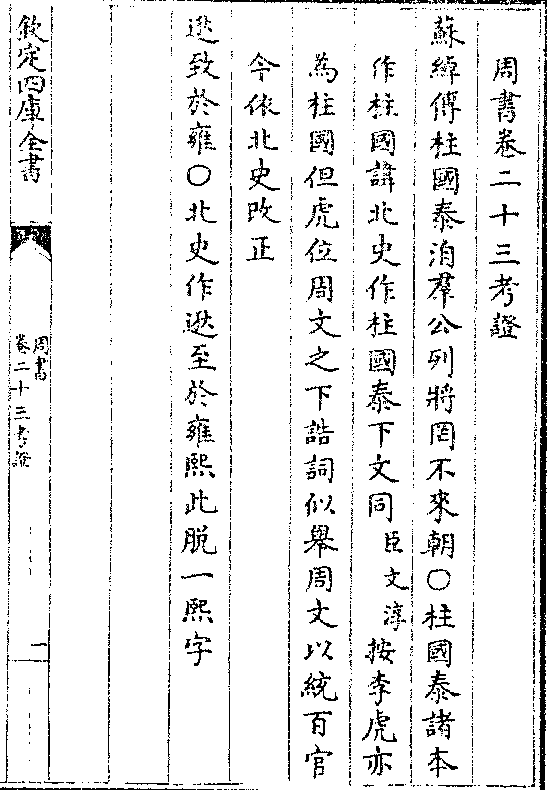 周書卷二十三考證
蘇綽傳柱國泰洎羣公列將罔不來朝○柱國泰諸本
作柱國諱北史作柱國泰下文同臣文淳按李虎亦
為柱國但虎位周文之下誥詞似舉周文以統百官
今依北史改正
遜致於雍○北史作遜至於雍熙此脫一熙字
欽定四庫全書
周書
卷二十三考證
一